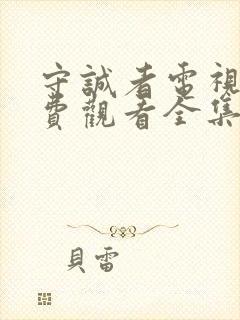 守誠者電視
費觀看全集
貝雷